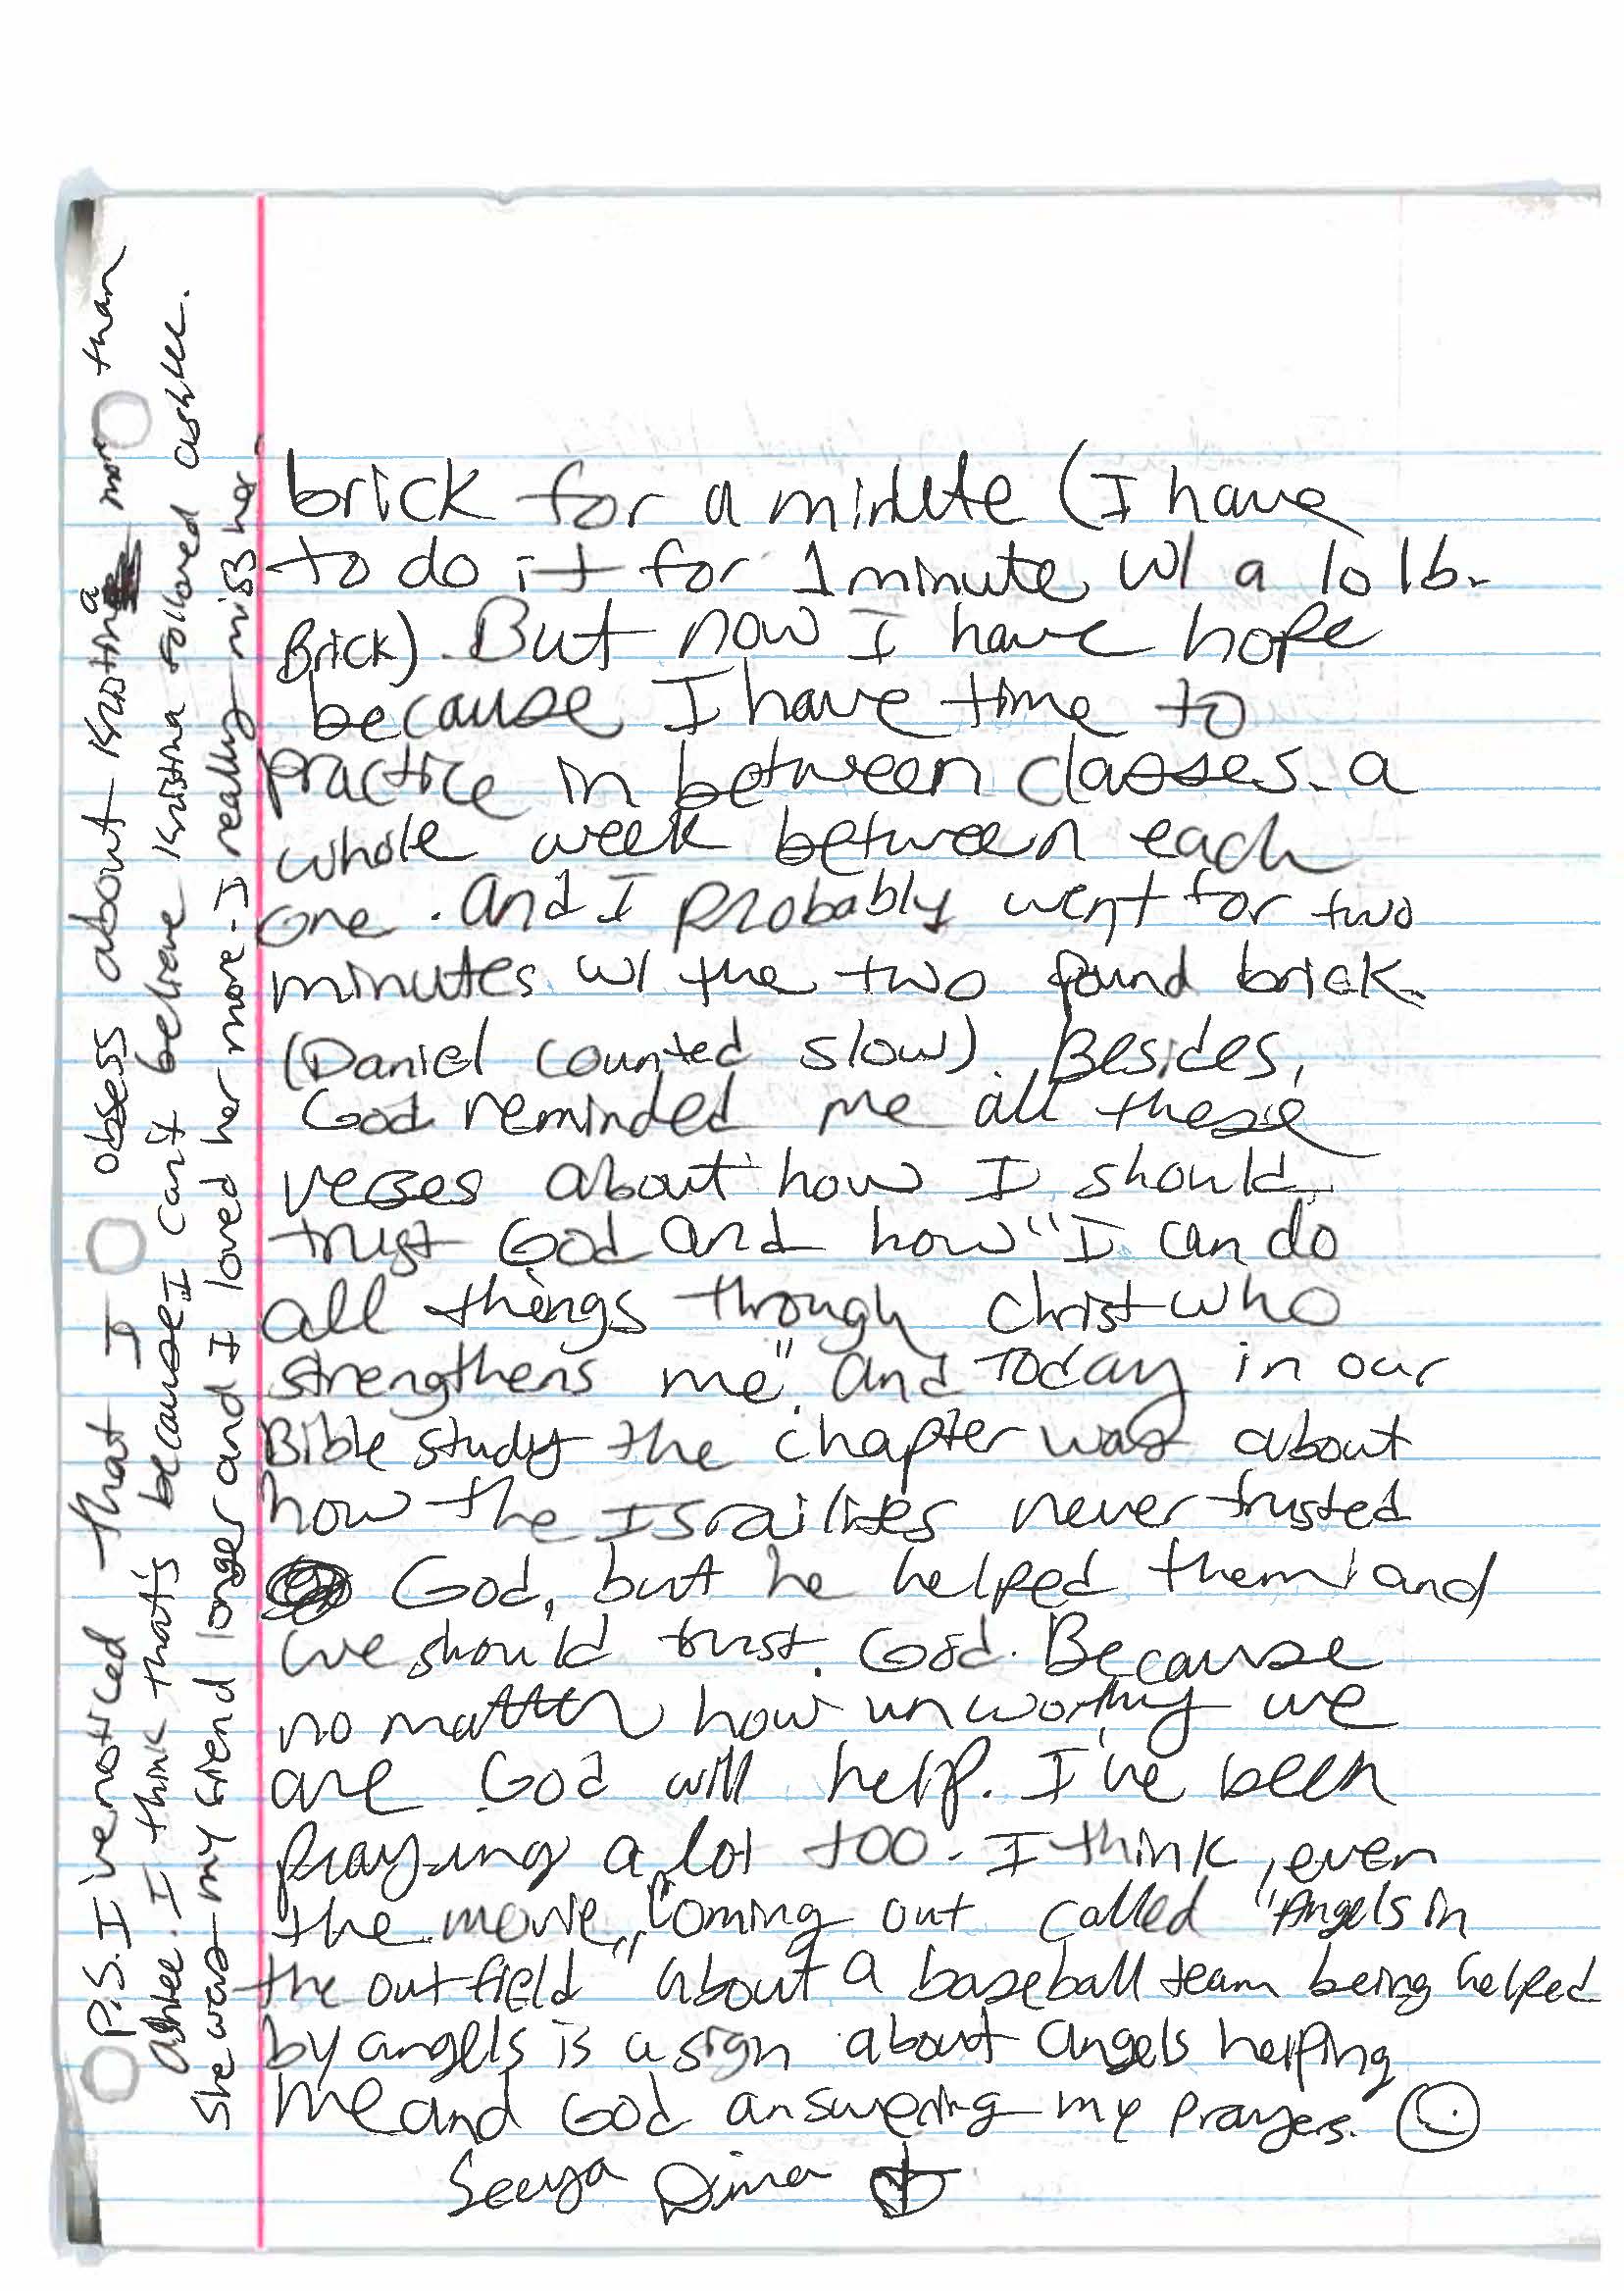 brick for a minute (I have
to do it for 1 minute w/ a 10 lb.
Brick). But now I have hope
because I have time to
practice in between classes. a
whole week between each
one. and I probably went for two
minutes w/ the two pound brick.
(Daniel counted slow). Besides,
God reminded me all these
verses about how I should
trust God and how "I can do
all things through Christ who
strengthens me". and Today in our
Bible study the chapter was about
how the Israilites never trusted
God, but he helped them and
we should trust God. Because
no matter how unworthy we
are God will help. I've been
praying a lot too. I think, even
the movie, coming out called "Angels in
the outfield" about a baseball team being helped
by angels is a sign about angels helping
me and God answering my prayers.
Seeya Dima
P.S. I've noticed that I obsess about Kristina more than
ashlee. I think that's because I can't believe Kristina followed ashlee.
She was my friend longer and I loved her more. I really miss her.